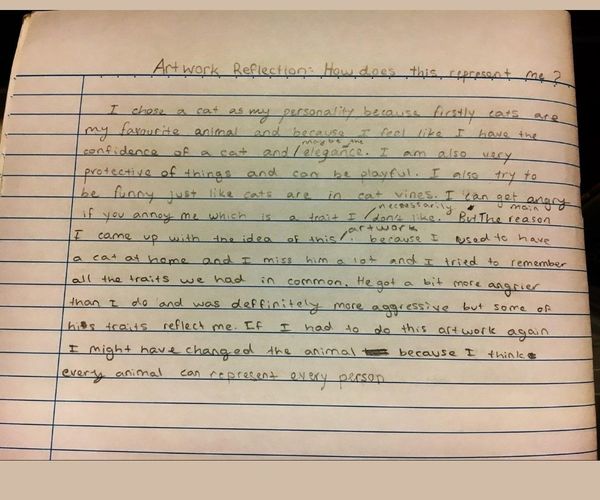 Artwork Reflection: How does this represent me?
I chose a cat as my personality because firstly cats are
my favourite animal and because I feel like I have the
confidence of a cat and / maybe the elegance. I am also very
protective of things and can be playful. I also try to
be funny just like cats are in cat vines. I can get angry
if you annoy me which is a trait I / necessarily don't like. But The main reason
I came up with the idea of this / artwork because I used to have
a cat at home and I miss him a lot and I tried to remember
all the traits we had in common. He got a bit more angrier
than I do and was deffinitely more aggressive but some of
his traits reflect me. If I had to do this artwork again
I might have changed the animal because I think
every animal can represent every person